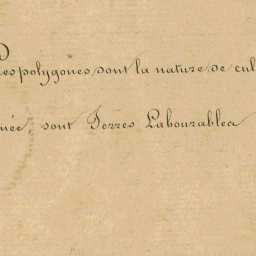 es polygones, dont la nature de cul
uée, sont Terres Labourables